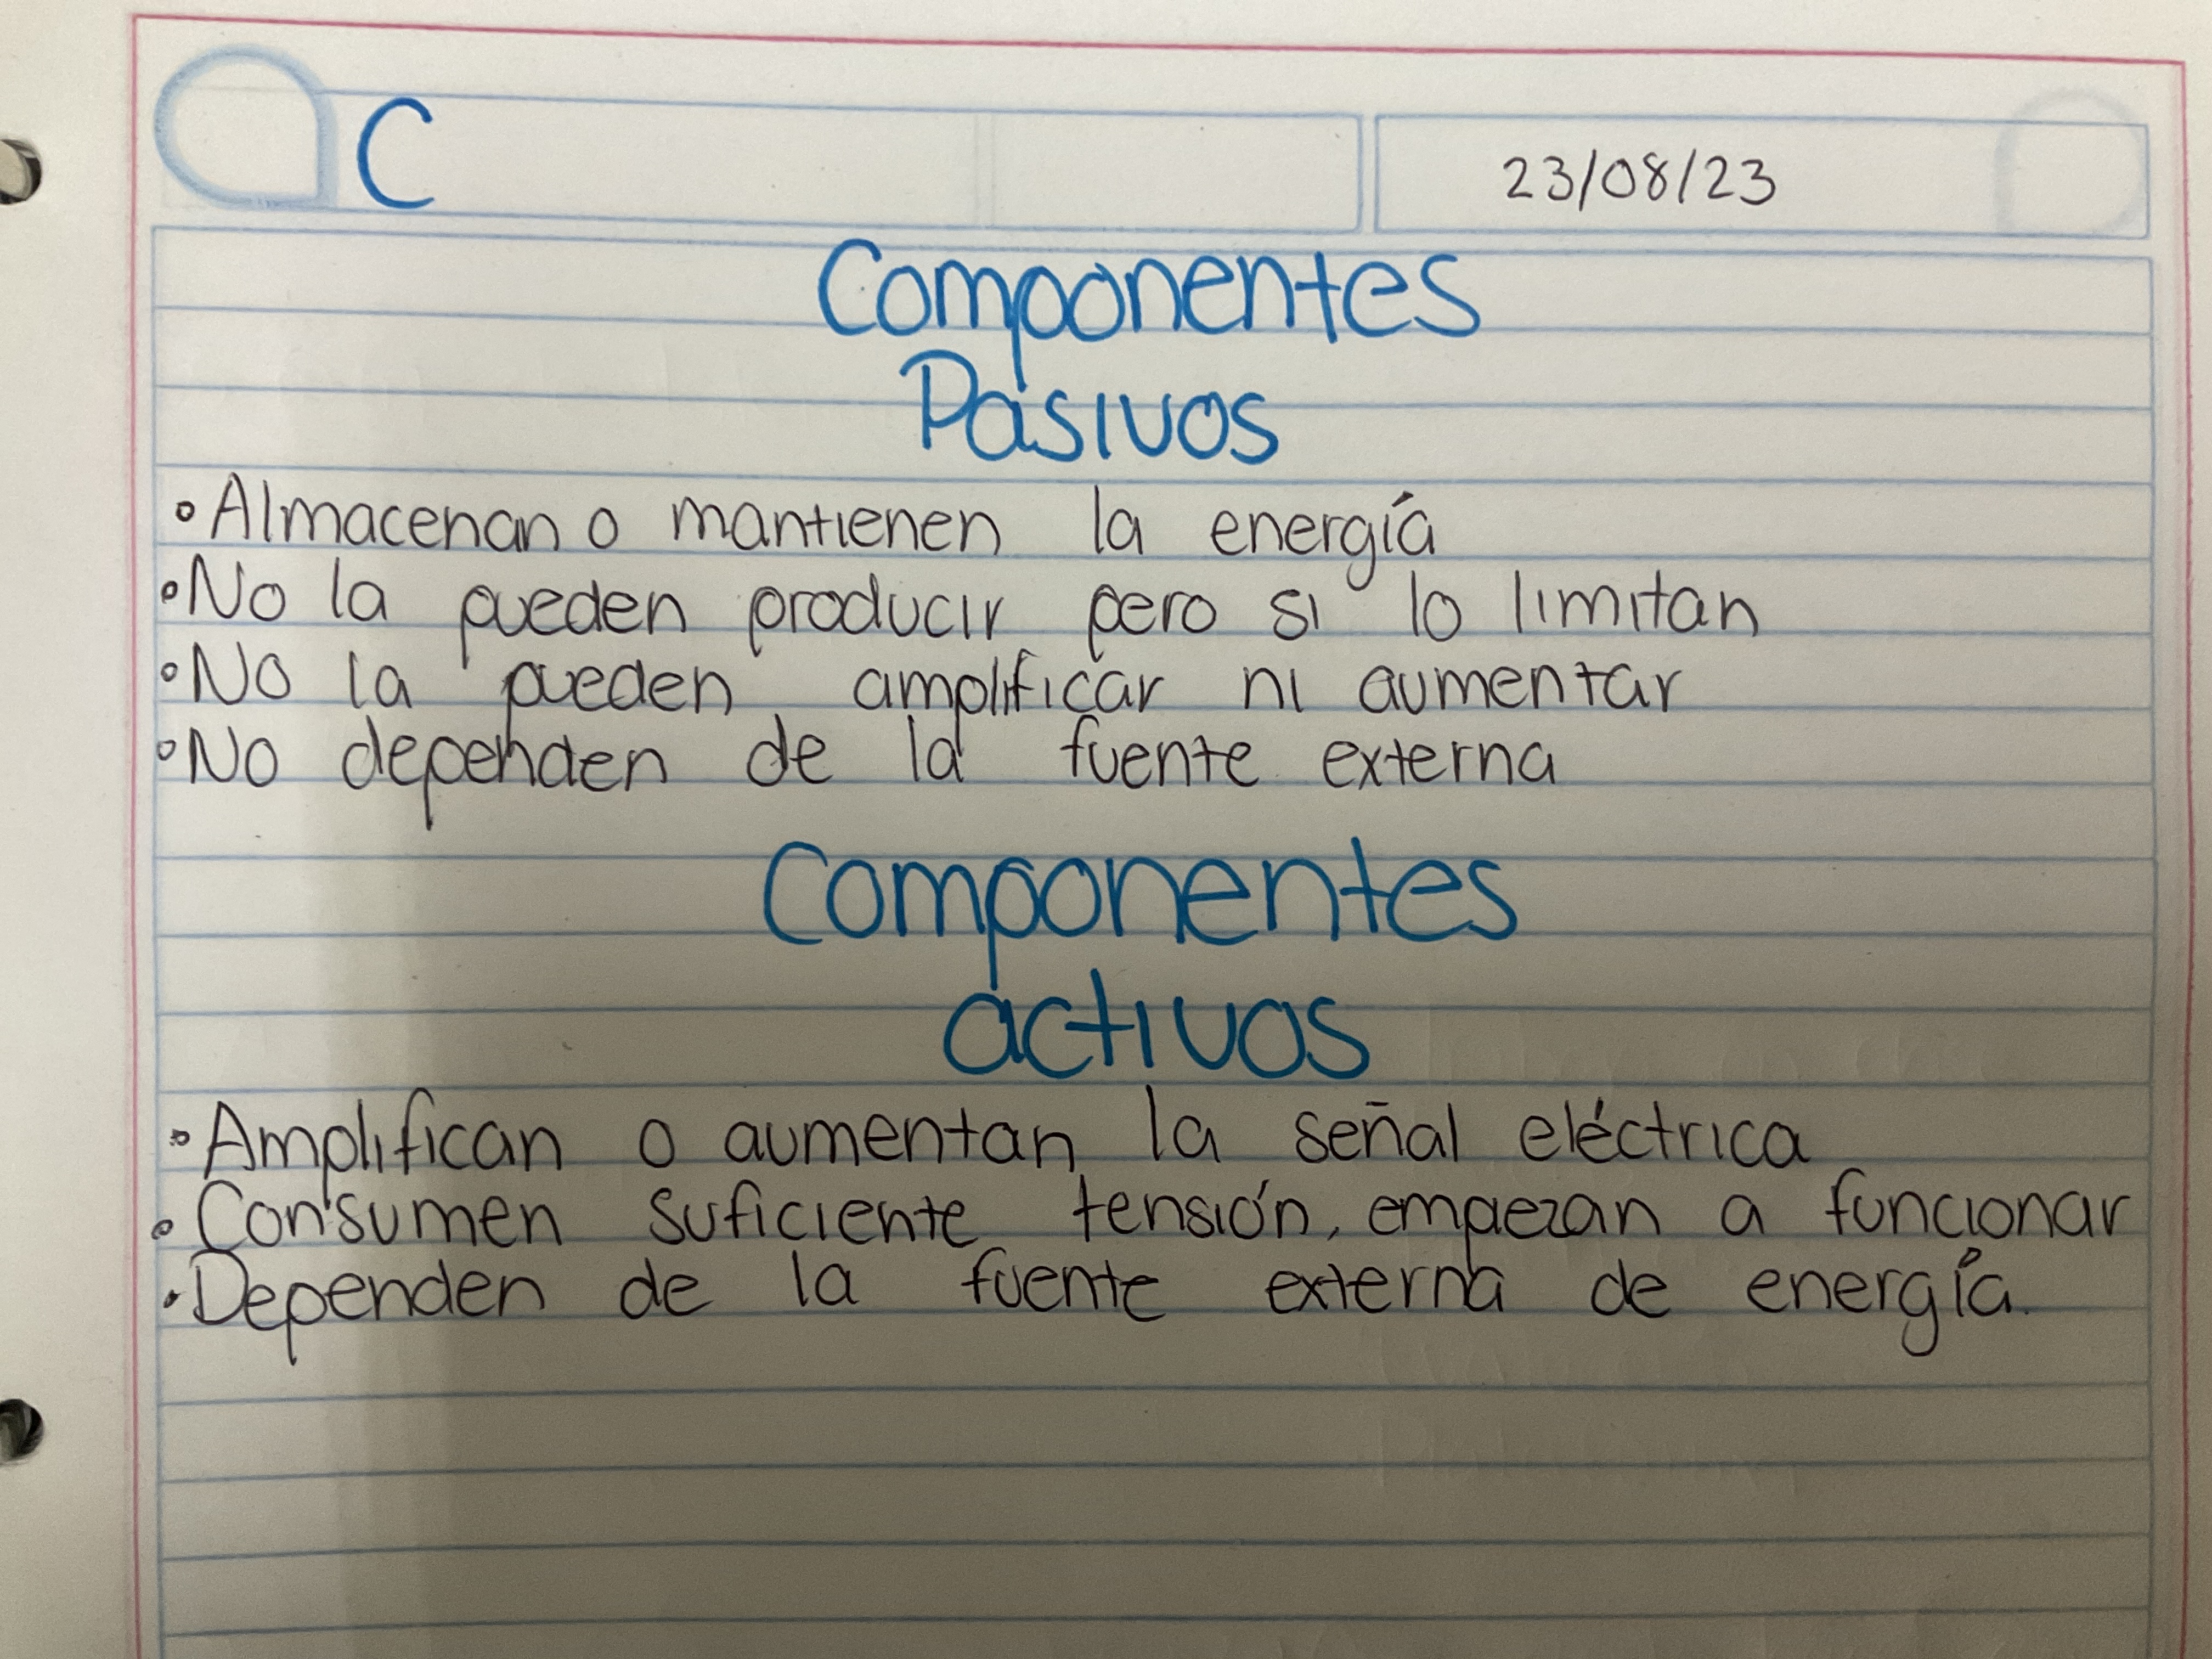 C
23/08/23
Componentes
Pasivos
•Almacenan o mantienen la energía
•No la pueden producir pero si lo limitan
•No la pueden amplificar ni aumentar
•No dependen de la fuente externa
Componentes
activos
•Amplifican o aumentan la señal eléctrica
•Consumen suficiente tensión, empezan a funcionar
•Dependen de la fuente externa de energía.